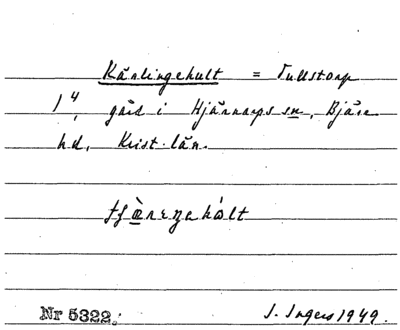 Kärlingehult = Tullstorp
1⁴, gård i Hjärnarps sn, Bjäre
hd, Krist. län.
Nr 5322. I. Ingers 1949.